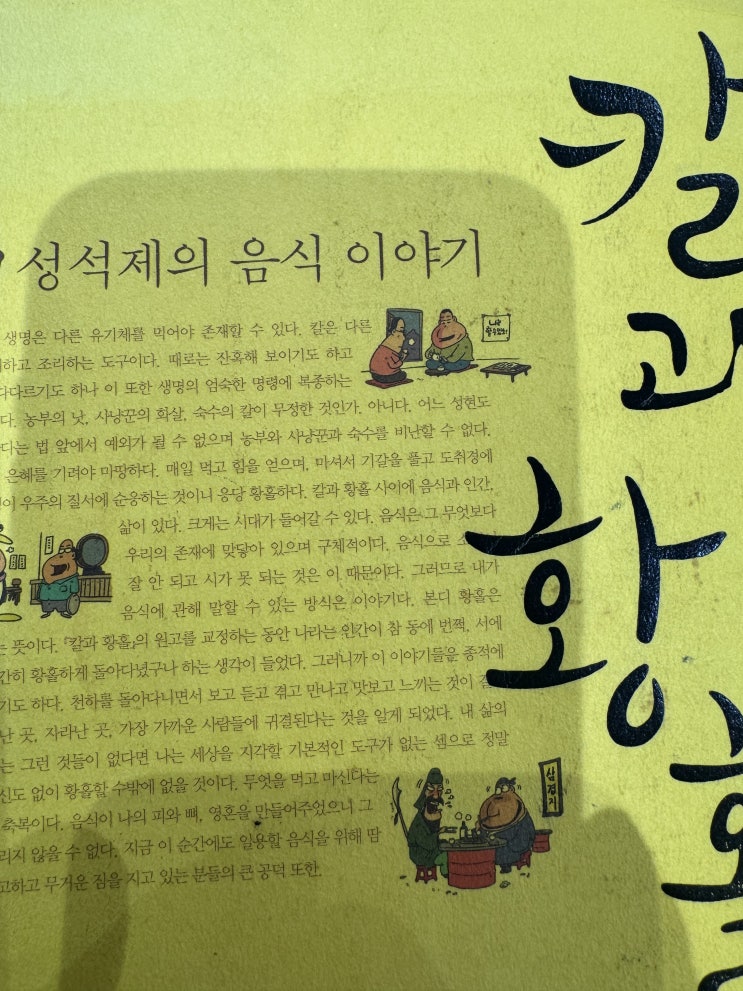 성석제의 음식 이야기
생명은 다른 유기체를 먹어야 존재할 수 있다. 칼은 다른
하고 조리하는 도구이다. 때로는 잔혹해 보이기도 하고
다다르기도 하나 이 또한 생명의 엄숙한 명령에 복종하는
다. 농부의 낫, 사냥꾼의 화살, 숙수의 칼이 무정한 것인가. 아니다. 어느 성현도
다는 법 앞에서 예외가 될 수 없으며 농부와 사냥꾼과 숙수를 비난할 수 없다.
은혜를 기려야 마땅하다. 매일 먹고 힘을 얻으며, 마셔서 기갈을 풀고 도취경에
이 우주의 질서에 순응하는 것이니 응당 황홀하다. 칼과 황홀 사이에 음식과 인간,
삶이 있다. 크게는 시대가 들어갈 수 있다. 음식은 그 무엇보다
우리의 존재에 맞닿아 있으며 구체적이다. 음식으로
잘 안 되고 시가 못 되는 것은 이 때문이다. 그러므로 내가
음식에 관해 말할 수 있는 방식은 이야기다. 본디 황홀은
는 뜻이다. 『칼과 황홀』의 원고를 교정하는 동안 나라는 인간이 참 동에 번쩍, 서에
간히 황홀하게 돌아다녔구나 하는 생각이 들었다. 그러니까 이 이야기들은 종적에
기도 하다. 천하를 돌아다니면서 보고 듣고 겪고 만나고 맛보고 느끼는 것이
난 곳, 자라난 곳, 가장 가까운 사람들에 귀결된다는 것을 알게 되었다. 내 삶의
는 그런 것들이 없다면 나는 세상을 지각할 기본적인 도구가 없는 셈으로 정말
신도 없이 황홀할 수밖에 없을 것이다. 무엇을 먹고 마신다는
축복이다. 음식이 나의 피와 뼈, 영혼을 만들어주었으니 그
리지 않을 수 없다. 지금 이 순간에도 일용할 음식을 위해 땀
고하고 무거운 짐을 지고 있는 분들의 큰 공덕 또한.
삼겹지
칼
과
황
홀